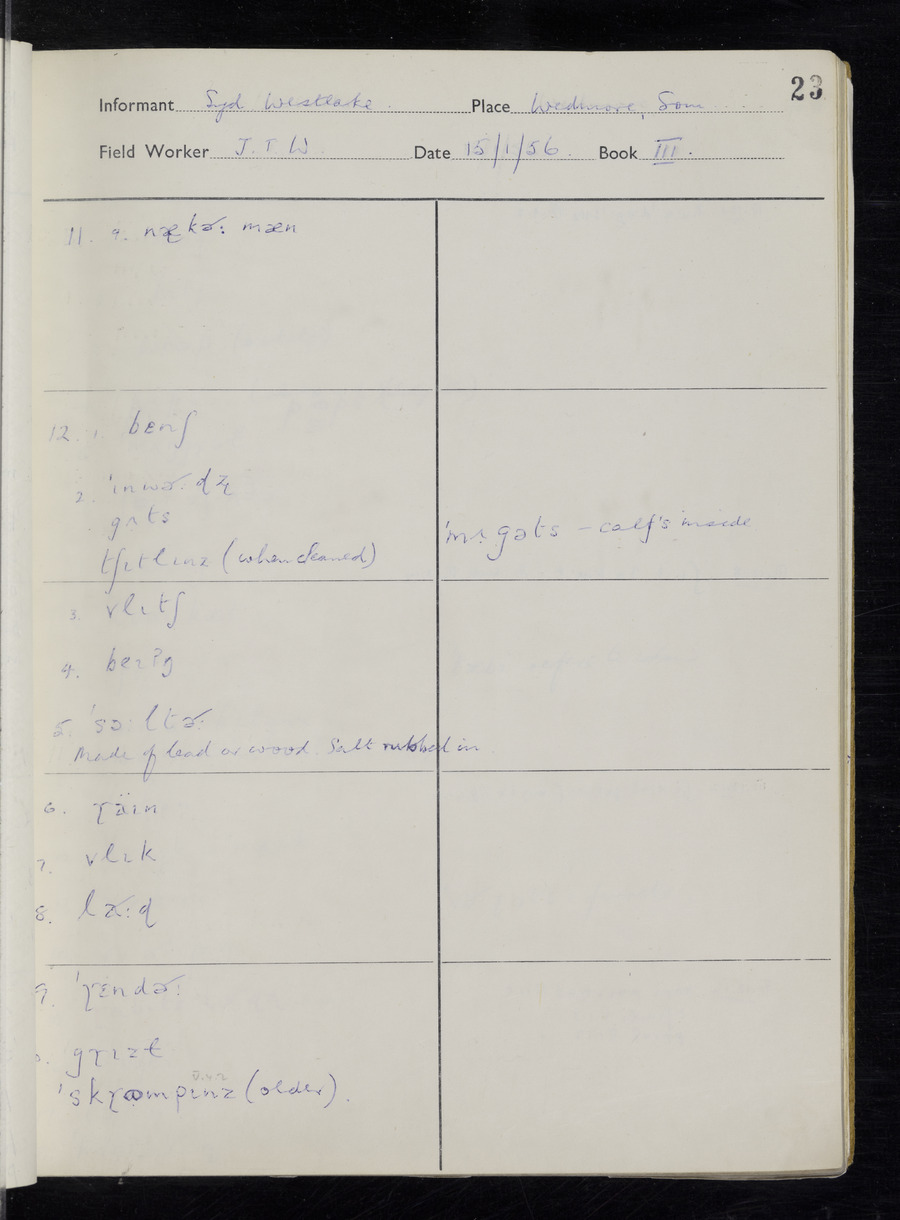 23
Informant Syd Westlake Place Wedmore, Som
Field Worker J. T W Date 15/1/56 Book III.
11. 9. næ̨kɚ: mæn
12. 1. bɛnʃ
2. 'ɩnwɚ:dʐ
gʌts
tʃɩtlɩnz (when cleaned)
'mʌgəts – calf's inside
3. vlɩtʃ
4.
5. 'sɔ:ltɚ:
Made of lead or wood. Salt rubbed in
6. ɽäɩn
7. vlɩk
8.
9. 'ɽɛndɚ:
gɽɩzɫ
'skɽɒmpɩnz (older).